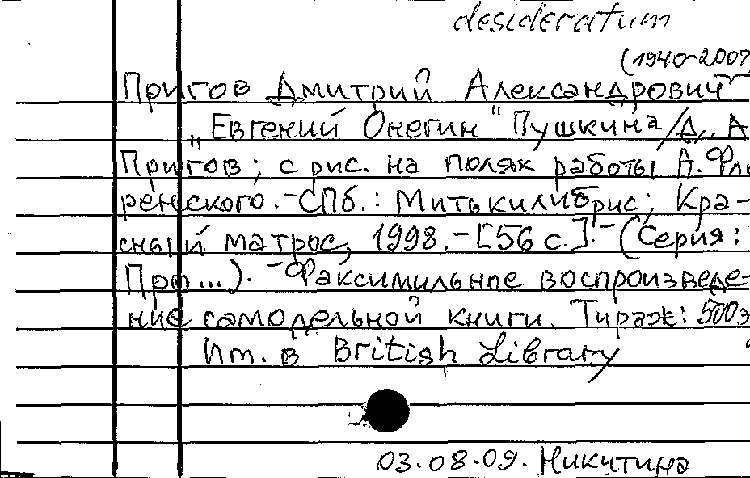 desideratum
(1940-2007
Пригов Дмитрий Александрович
„Евгений Онегин" Пушкина / Д. А
Пригов; с рис. на полях работы А. Фло
ренского. - СПб.: Митькилибрис; Кра-
сный матрос, 1998. - [56 с.]. - (Серия:
Про...). - Факсимильное воспроизведе-
ние самодельной книги. Тираж: 500э
Им. в British Library
03.08.09. Никитина